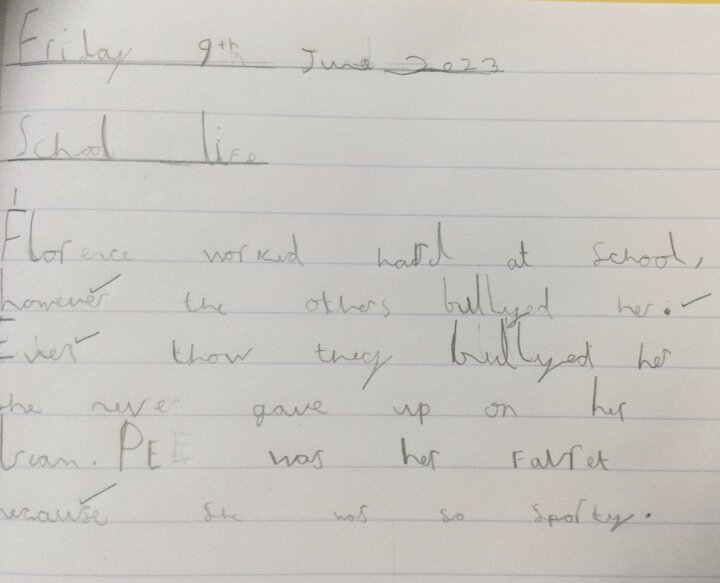 Friday 9th June 2023
School life
Florence worked hard at School,
however the others bullyed her.
Even thow they bullyed her
she never gave up on her
Dream. PE was her favret
because She was so sporty.